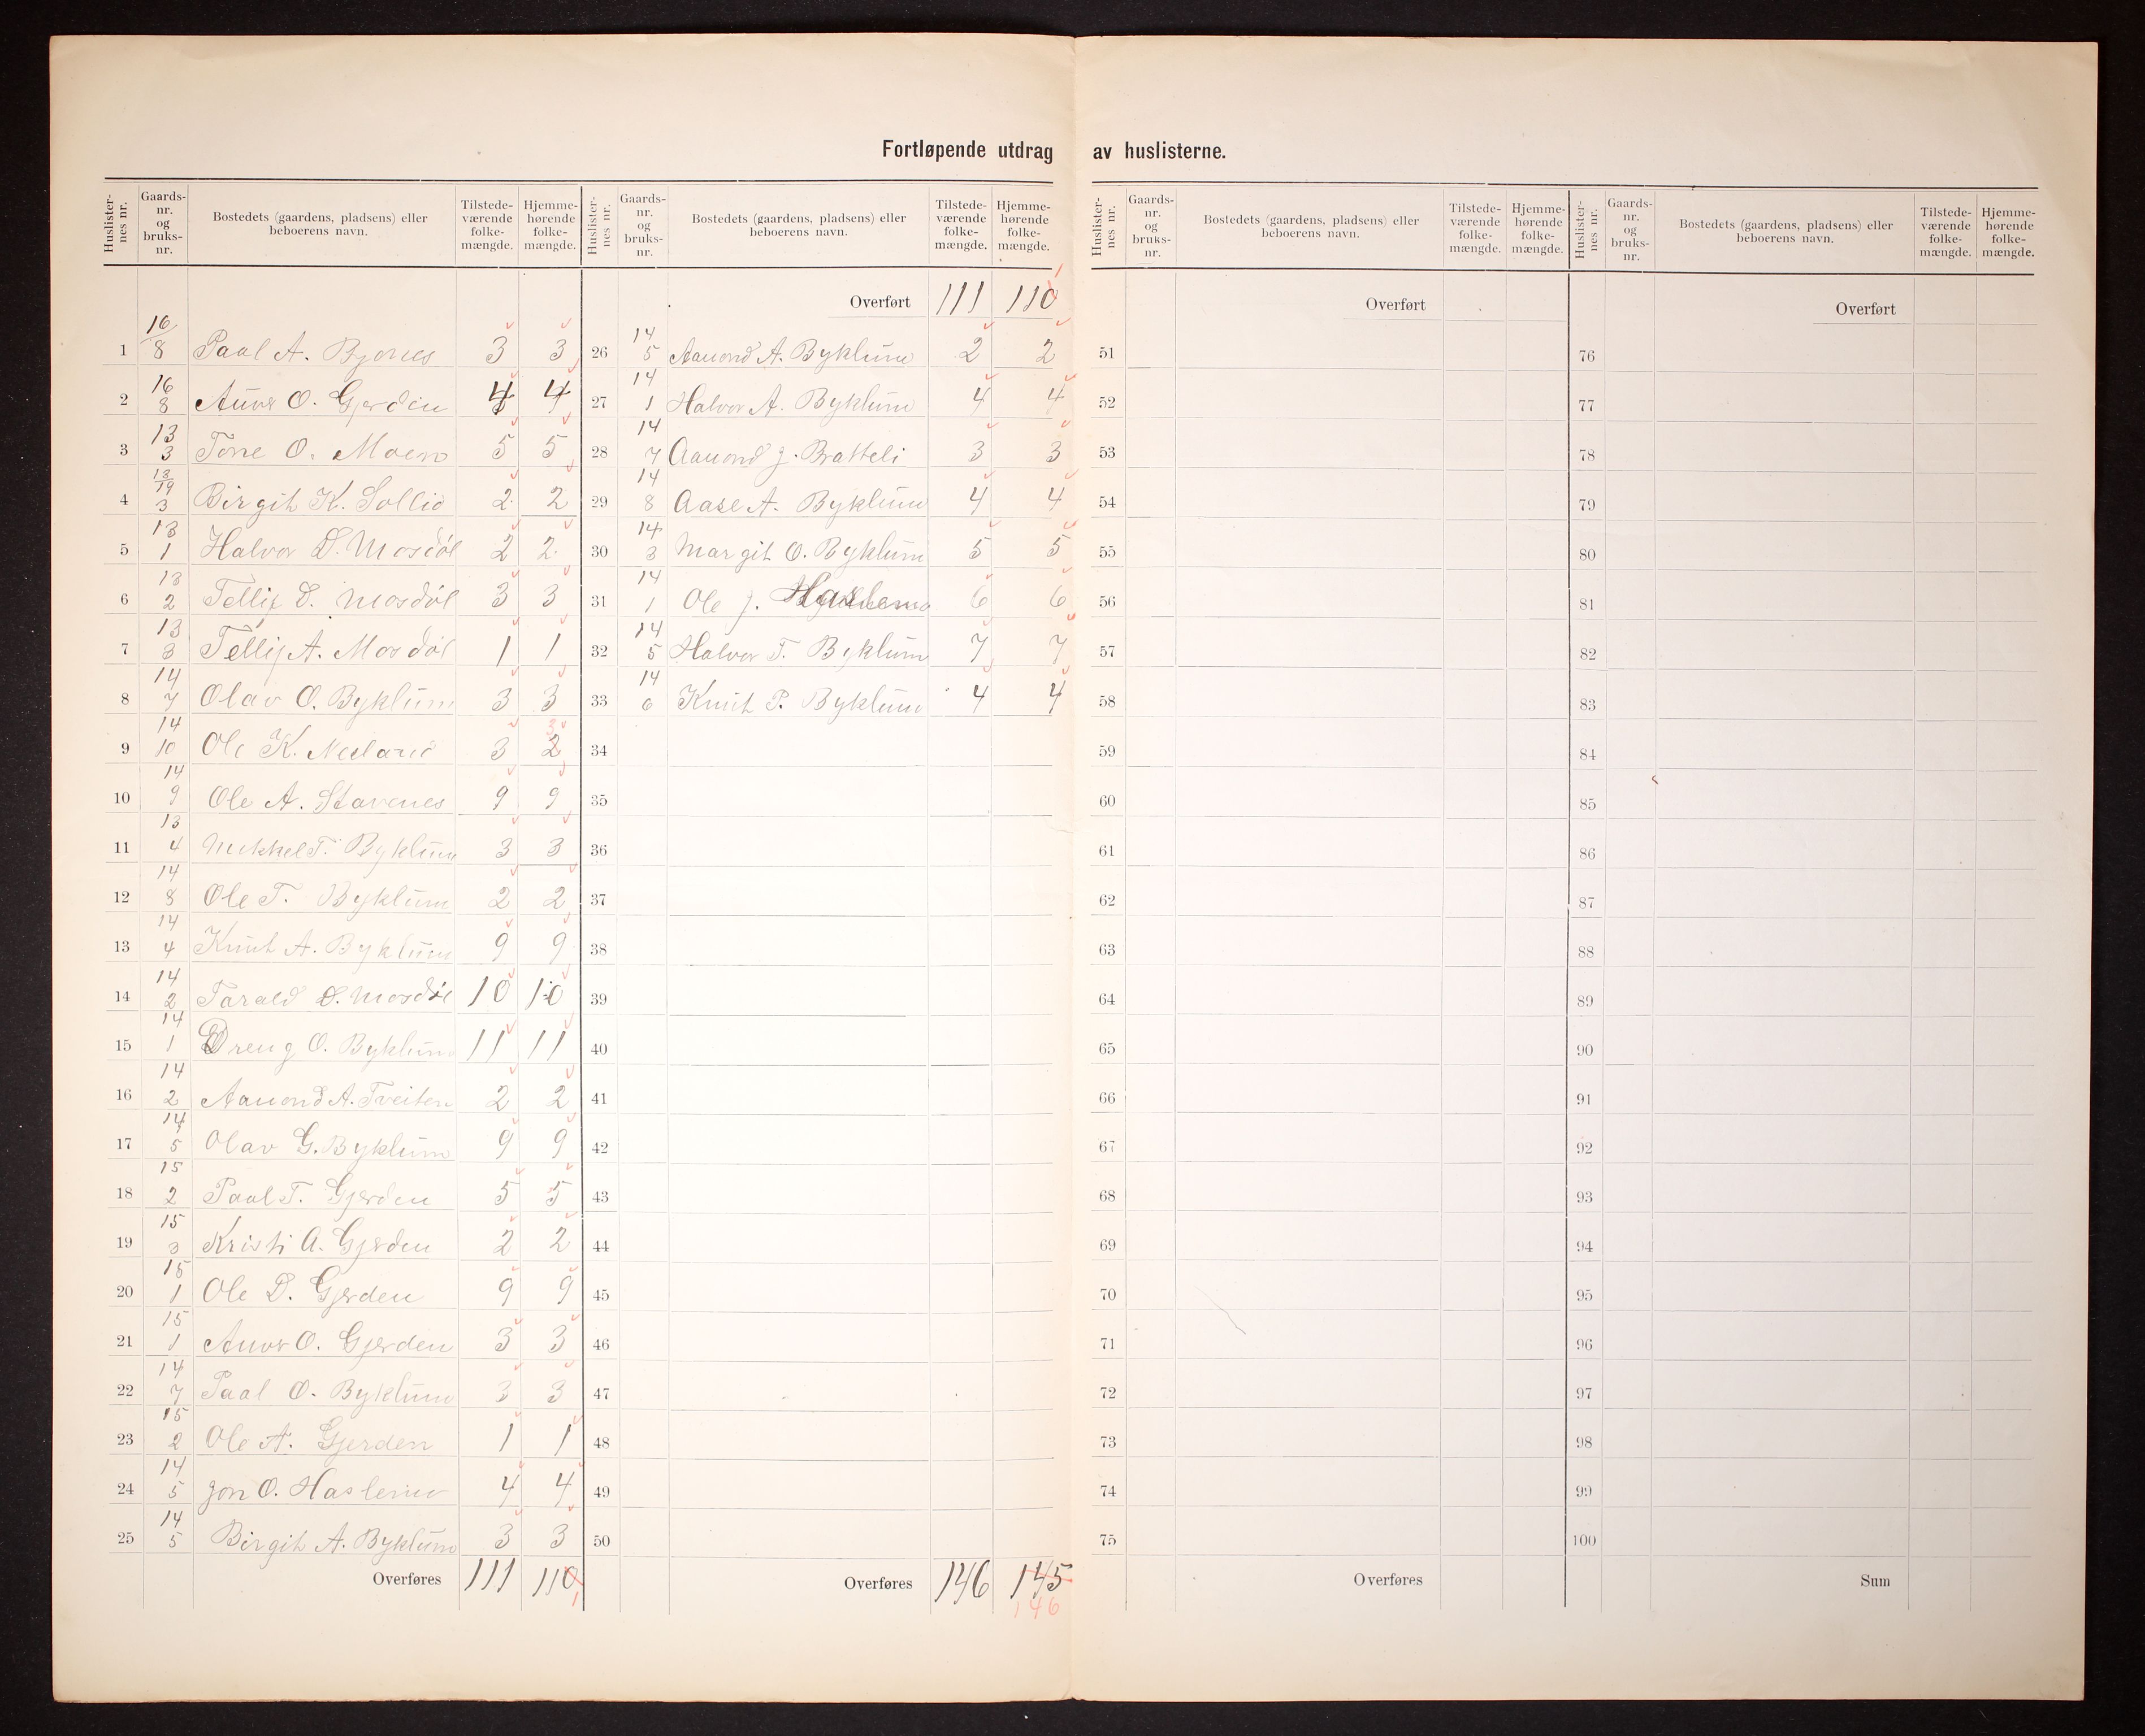 Fortløpende utdrag av huslisterne.
Huslister- nes nr. | Gaards- nr. og bruks- nr. | Bostedets (gaardens, pladsens) eller beboerens navn. | Tilstede- værende folke- mængde. | Hjemme- hørende folke- mængde.
1 16/8 Paal A. Bjones 3 3
2 16 8 O. Gjerden 4 4
3 13 3 Tone O. Moen 5 5
4 13 3 Birgit K. Sollid 2 2
5 13 1 Halvor D. Mosdöl 2 2
6 13 2 Tellif D. Mosdöl 3 3
7 13 3 Tellif A. Mosdöl 1 1
8 14 7 Olav O. Byklum 3 3
9 14 10 Ole K. 3 2 3
10 14 9 Ole A. Stavenes 9 9
11 13 4 Mikkel T. Byklum 3 3
12 14 8 Ole T. Byklum 2 2
13 14 4 Knut A. Byklum 9 9
14 14 2 Tarald D. Mosdöl 10 10
15 14 1 Dreng O. Byklum 11 11
16 14 2 Aamond A. Tveiten 2 2
17 14 5 Olav G. Byklum 9 9
18 15 2 Paal T. Gjerden 5 5
19 15 3 Kristi A. Gjerden 2 2
20 15 1 Ole P. Gjerden 9 9
21 15 1 O. Gjerden 3 3
22 14 7 Paal O. Byklum 3 3
23 15 2 Ole A. Gjerden 1 1
24 14 5 Jon O. Haslemo 4 4
25 14 5 Birgit A. Byklum 3 3
Overføres 111 110 1
Huslister- nes nr. | Gaards- nr. og bruks- nr. | Bostedets (gaardens, pladsens) eller beboerens navn. | Tilstede- værende folke- mængde. | Hjemme- hørende folke- mængde.
Overført 111 110 1
26 14 5 Aamond A. Byklum 2 2
27 14 1 Halvor A. Byklum 4 4
28 14 7 Aamond J. Bratteli 3 3
29 14 8 Aase A. Byklum 4 4
30 14 3 Margit O. Byklum 5 5
31 14 1 Ole J. Haslemo 6 6
32 14 5 Halvor T. Byklum 7 7
33 14 6 Knut P. Byklum 4 4
34
35
36
37
38
39
40
41
42
43
44
45
46
47
48
49
50
Overføres 146 145 146
Huslister- nes nr. | Gaards- nr. og bruks- nr. | Bostedets (gaardens, pladsens) eller beboerens navn. | Tilstede- værende folke- mængde. | Hjemme- hørende folke- mængde.
Overført
51
52
53
54
55
56
57
58
59
60
61
62
63
64
65
66
67
68
69
70
71
72
73
74
75
Overføres
Huslister- nes nr. | Gaards- nr. og bruks- nr. | Bostedets (gaardens, pladsens) eller beboerens navn. | Tilstede- værende folke- mængde. | Hjemme- hørende folke- mængde.
Overført
76
77
78
79
80
81
82
83
84
85
86
87
88
89
90
91
92
93
94
95
96
97
98
99
100
Sum